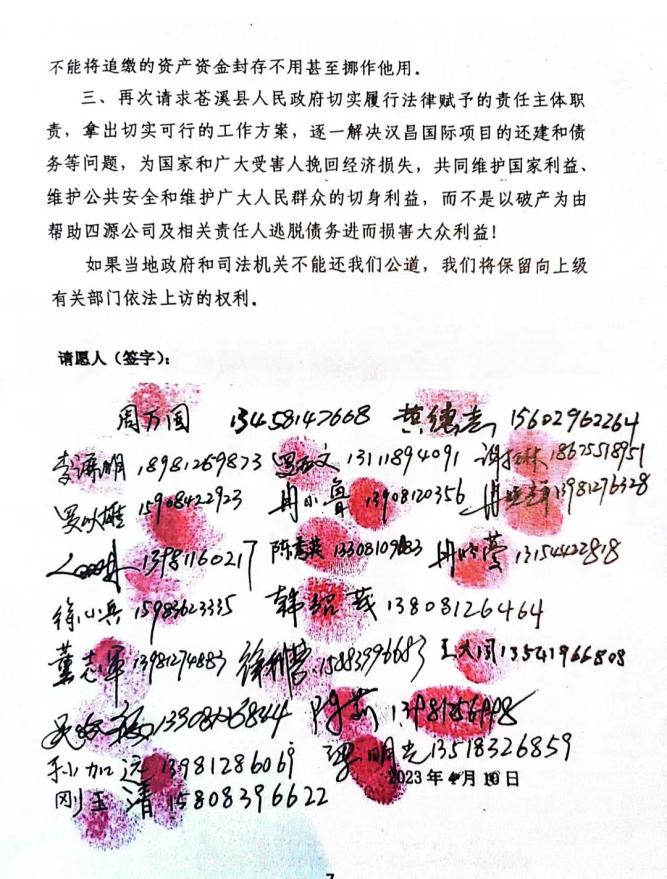 不能将追缴的资产资金封存不用甚至挪作他用。
三、再次请求苍溪县人民政府切实履行法律赋予的责任主体职
责，拿出切实可行的工作方案，逐一解决汉昌国际项目的还建和债
务等问题，为国家和广大受害人挽回经济损失，共同维护国家利益、
维护公共安全和维护广大人民群众的切身利益，而不是以破产为由
帮助四源公司及相关责任人逃脱债务进而损害大众利益！
如果当地政府和司法机关不能还我们公道，我们将保留向上级
有关部门依法上访的权利。
请愿人（签字）：
周万国 13458147668 15602962264
18981269873 13111894091 18675518951
15908422923 冉小鲁 13908120356 13981276328
13981160217 陈秀英 13154422818
徐小兵 15983623335 韩绍茂 13808126464
董志军 13981274883 15883996683 13541966808
孙加远 13981286069 梁明光 13518326859
2023年 月 日
刚玉清 15808396622
7